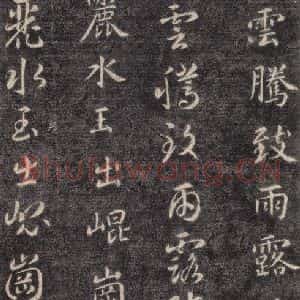 雲騰致雨露
雲騰致雨露
麗水玉出崐崗
麗水玉出崑崗
ShuFaWang.CN